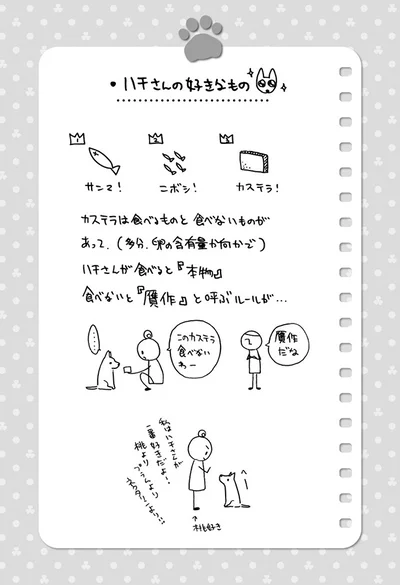 ・ハチさんの好きなもの
1
2
3
サンマ!
ニボシ!
カステラ!
カステラは食べるものと食べないものが
あって、(多分、卵の含有量か何かで)
ハチさんが食べると『本物』
食べないと『贋作』と呼ぶルールが…
……
このカステラ
食べない
わー
贋作
だな
私はハチさんが
一番好きだよ!
桃よりぶどうより
ネクタリンよりっ!!
へー
↑
桃好き